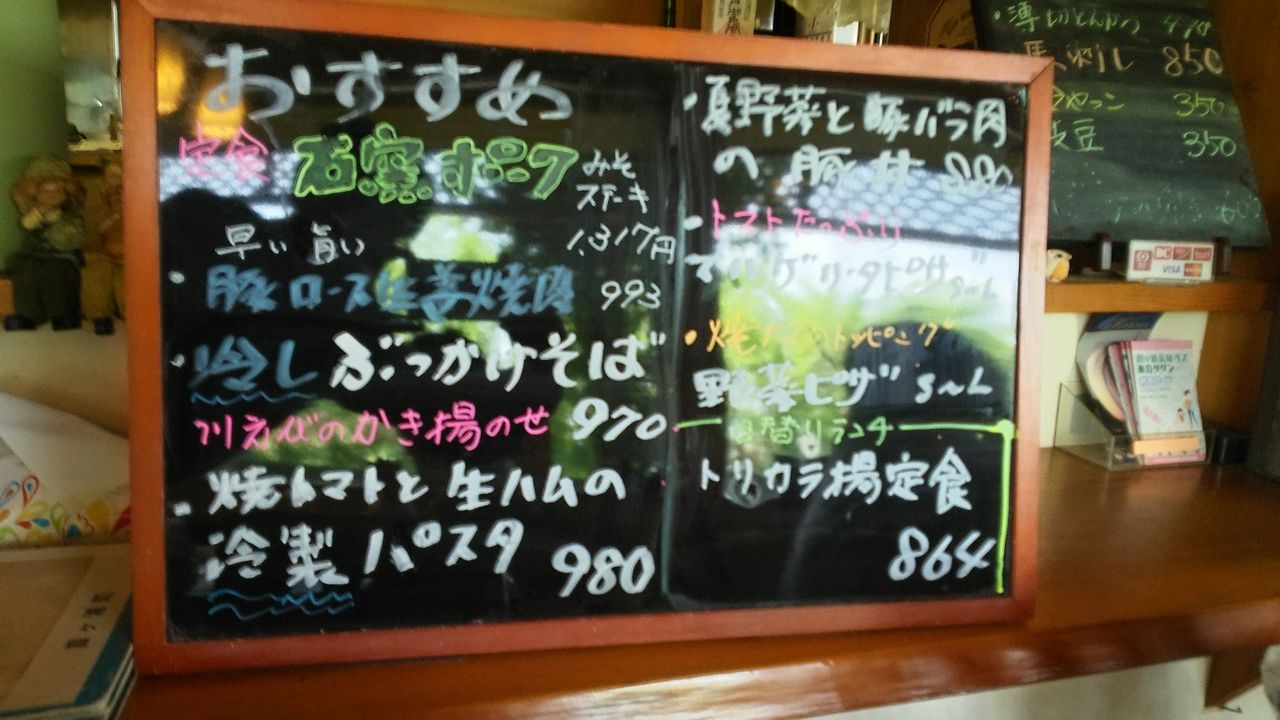 おすすめ
定食 石窯ポーク みそ
ステーキ
早い 旨い 1,317円
・豚ロース生姜焼肉 993
・冷しぶっかけそば
川えびのかき揚のせ 970
・焼トマトと生ハムの
冷製パスタ 980
・夏野菜と豚バラ肉
の豚丼 880
・トマトたっぷり
マルゲリータピザ S〜L
野菜ピザ S〜L
日替りランチ
トリカラ揚定食
864
・薄切とんかつ 470
850
350
豆 350
VISA